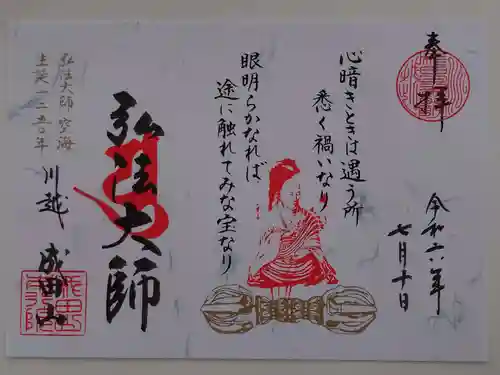 奉拝
令和六年
七月十日
心暗きときは遇う所
悉く禍いなり
眼明らかなれば、
途に触れてみな宝なり
弘法大師
弘法大師 空海
生誕一二五〇年
川越 成田山